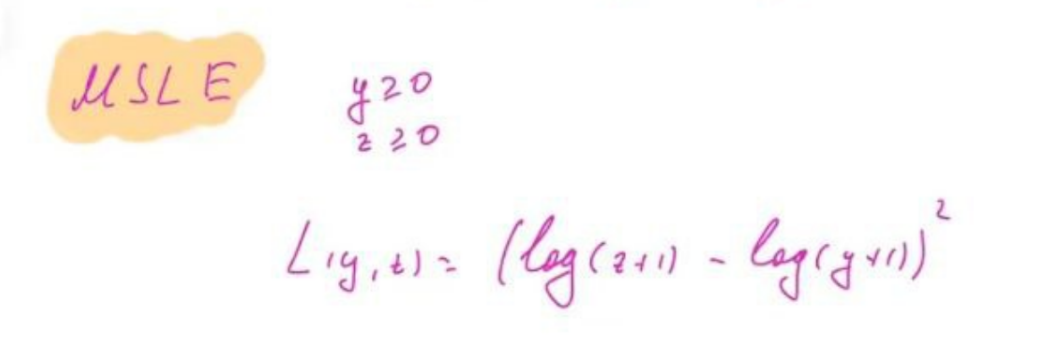 MSLE
y ≥ 0
z ≥ 0
L(y, z) = (log(z+1) - log(y+1))²